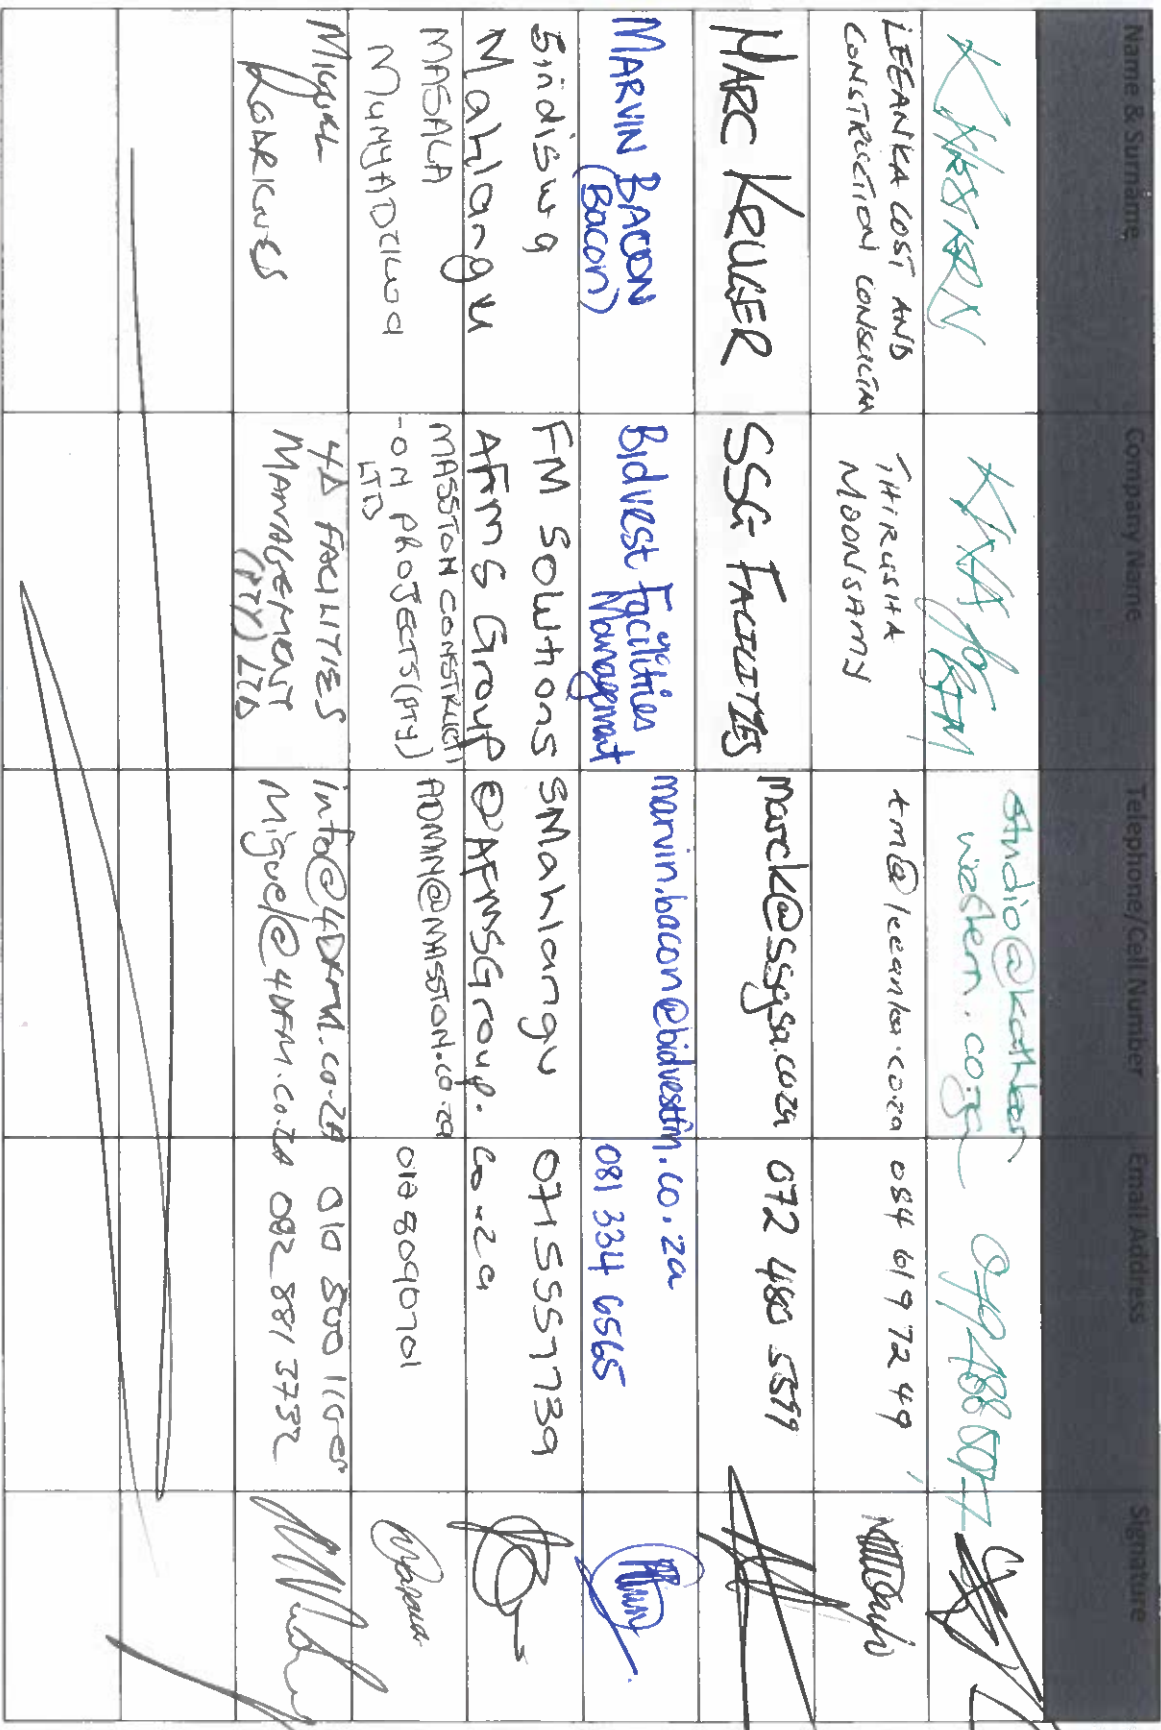 Name & Surname Company Name Telephone/Cell Number Email Address Signature
studio@kathan
LEEANKA COST AND
CONSTRUCTION
THIRUSHA
MOONSAMY
tm@leeanka.co.za
084 619 7249
MARC KRUGER
SSG FACILITIES
marck@ssgsa.co.za
072 480 5559
MARVIN BACON
(Bacon)
Bidvest Facilities
Management
marvin.bacon@bidvestfm.co.za
081 334 6565
Sindiswa
Mahlangu
FM Solutions
AFMS Group
SMahlangu
@AFMSGroup.
co.za
0715557739
MASALA
MASSTON CONSTRUCTI
-ON PROJECTS (PTY)
LTD
ADMIN@MASSTON.co.za
0128090701
Miguel
4D FACILITIES
MANAGEMENT
(PTY) LTD
info@4DFM.co.za
Miguel@4DFM.co.za
082 881 3732